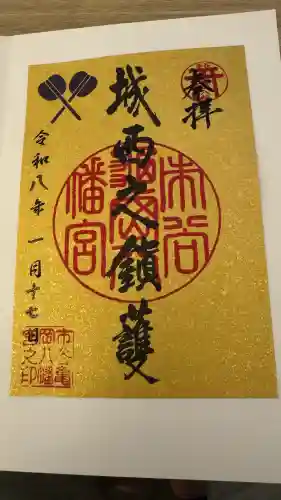 奉拝
城西之鎮護
市谷
幡宮
令和八年 一月十七日
市谷亀
岡八幡
宮之印